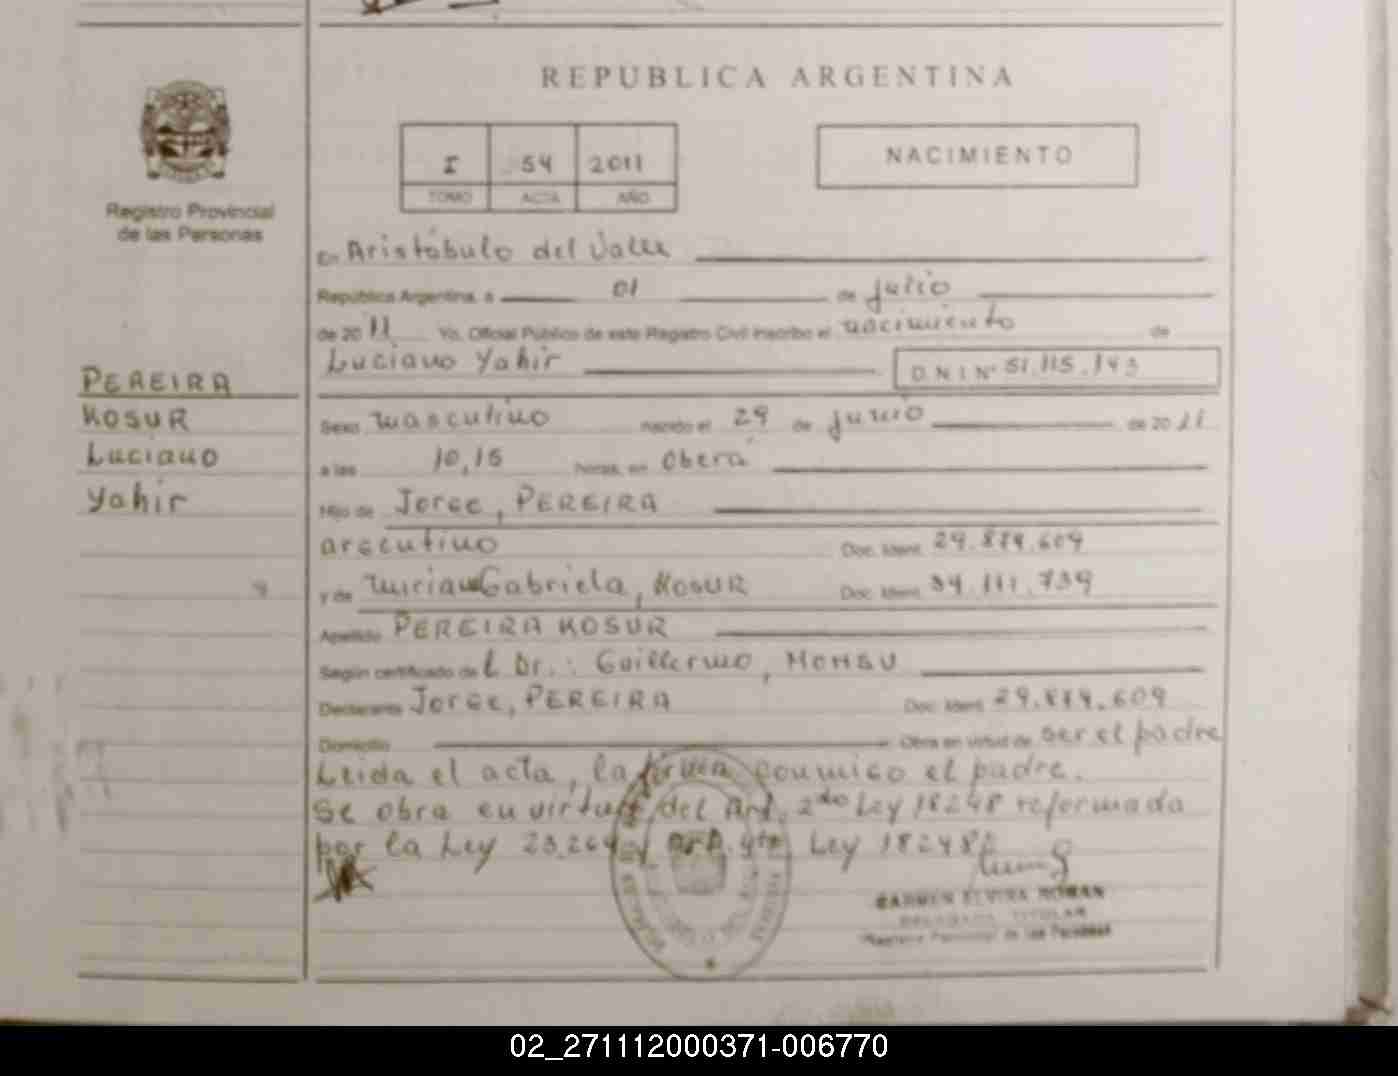 REPUBLICA ARGENTINA
I 54 2011
TOMO ACTA AÑO
NACIMIENTO
Registro Provincial
de las Personas
En Aristóbulo del Valle
República Argentina, a 01 de julio
de 2011 Yo, Oficial Público de este Registro Civil inscribo el nacimiento de
Luciano Yahir D.N.I. Nº 51.115.143
PEREIRA
KOSUR
Luciano
Yahir
Sexo masculino nacido el 29 de junio de 2011
a las 10,15 horas, en Oberá
Hijo de Jorge, PEREIRA
argentino Doc. Ident. 29.879.609
y de Mirian Gabriela, KOSUR Doc. Ident. 34.111.739
Apellido PEREIRA KOSUR
Según certificado del Dr.: Guillermo,
Declarante Jorge, PEREIRA Doc. Ident. 29.879.609
Domicilio Obra en virtud de ser el padre
Leida el acta, la firma conmigo el padre.
Se obra en virtud del Art. 2do Ley 18248 reformada
por la Ley 23.264 y Art. 4to Ley 18248
CARMEN ELVIRA ROMAN
DELEGADA TITULAR
Registro Provincial de las Personas
02_271112000371-006770